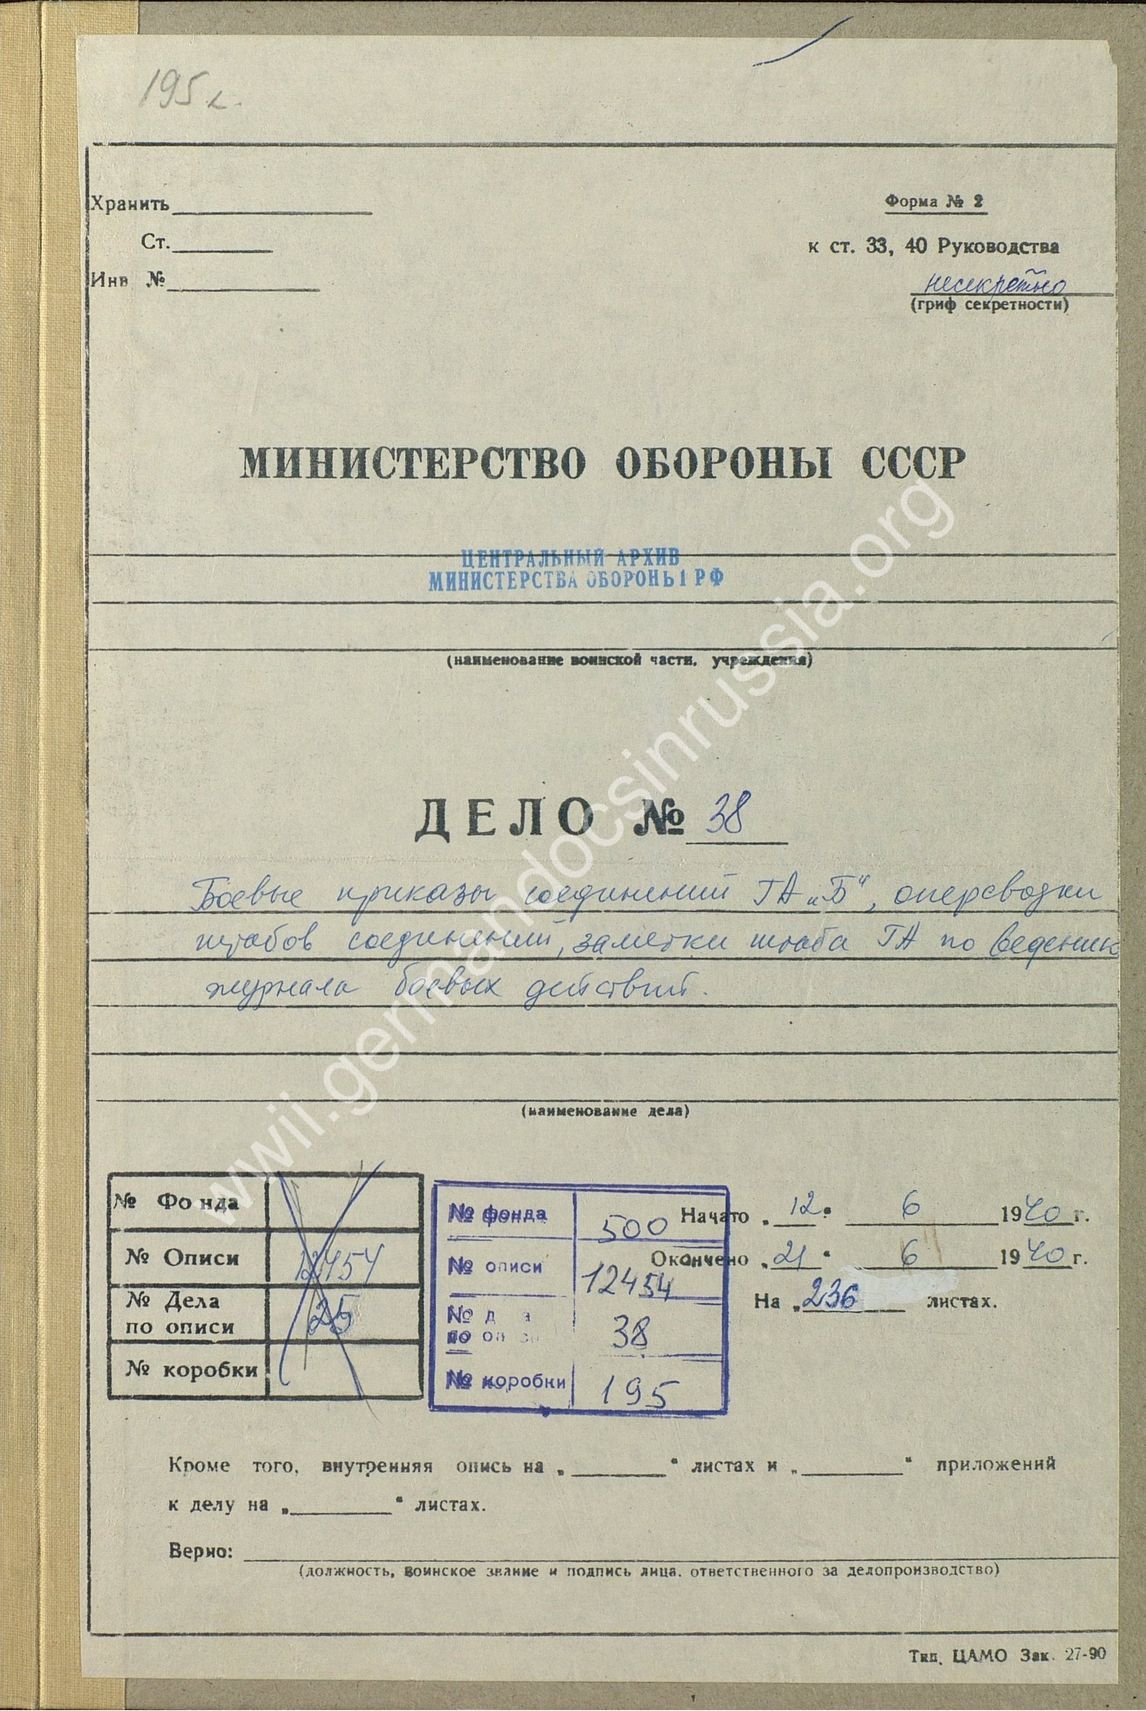 195 г.
Хранить
Форма № 2
Ст.
к ст. 33, 40 Руководства
Инв №
несекретно
(гриф секретности)
МИНИСТЕРСТВО ОБОРОНЫ СССР
ЦЕНТРАЛЬНЫЙ АРХИВ
МИНИСТЕРСТВА ОБОРОНЫ РФ
(наименование воинской части, учреждения)
ДЕЛО № 38
Боевые приказы соединений ГА „Б“, оперсводки
штабов соединений, заметки штаба ГА по ведению
журнала боевых действий.
(наименование дела)
№ Фонда
№ Описи 12454
№ Дела
по описи 25
№ коробки
№ фонда 500
№ описи 12454
№ д а
по оп 38
№ коробки 195
Начато „12“ 6 1940 г.
Окончено „21“ 6 1940 г.
На „236 листах.
Кроме того, внутренняя опись на „ “ листах и „ “ приложений
к делу на „ “ листах.
Верно:
(должность, воинское звание и подпись лица, ответственного за делопроизводство)
Тип. ЦАМО Зак. 27-90
wwii.germandocsinrussia.org